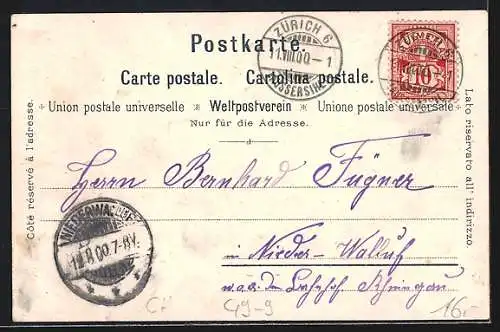 Postkarte.
Carte postale. Cartolina postale.
Union postale universelle * Weltpostverein * Unione postale universale
Nur für die Adresse.
Côté réservé à l'adresse.
Lato riservato all' indirizzo.
ZÜRICH 6
11.VIII.00-1
AUSSERSIHL
ZÜRICH
10
Herrn Bernhard Fügner
in Nieder-Walluf
a. Rheingau
NIEDERWALLUF
12.8.00.7-8V.
C49-9
16.-